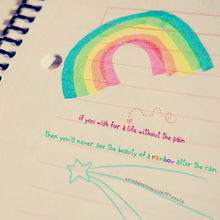 if you wish for a life without the pain
then you'll never see the beauty of a rainbow after the rain